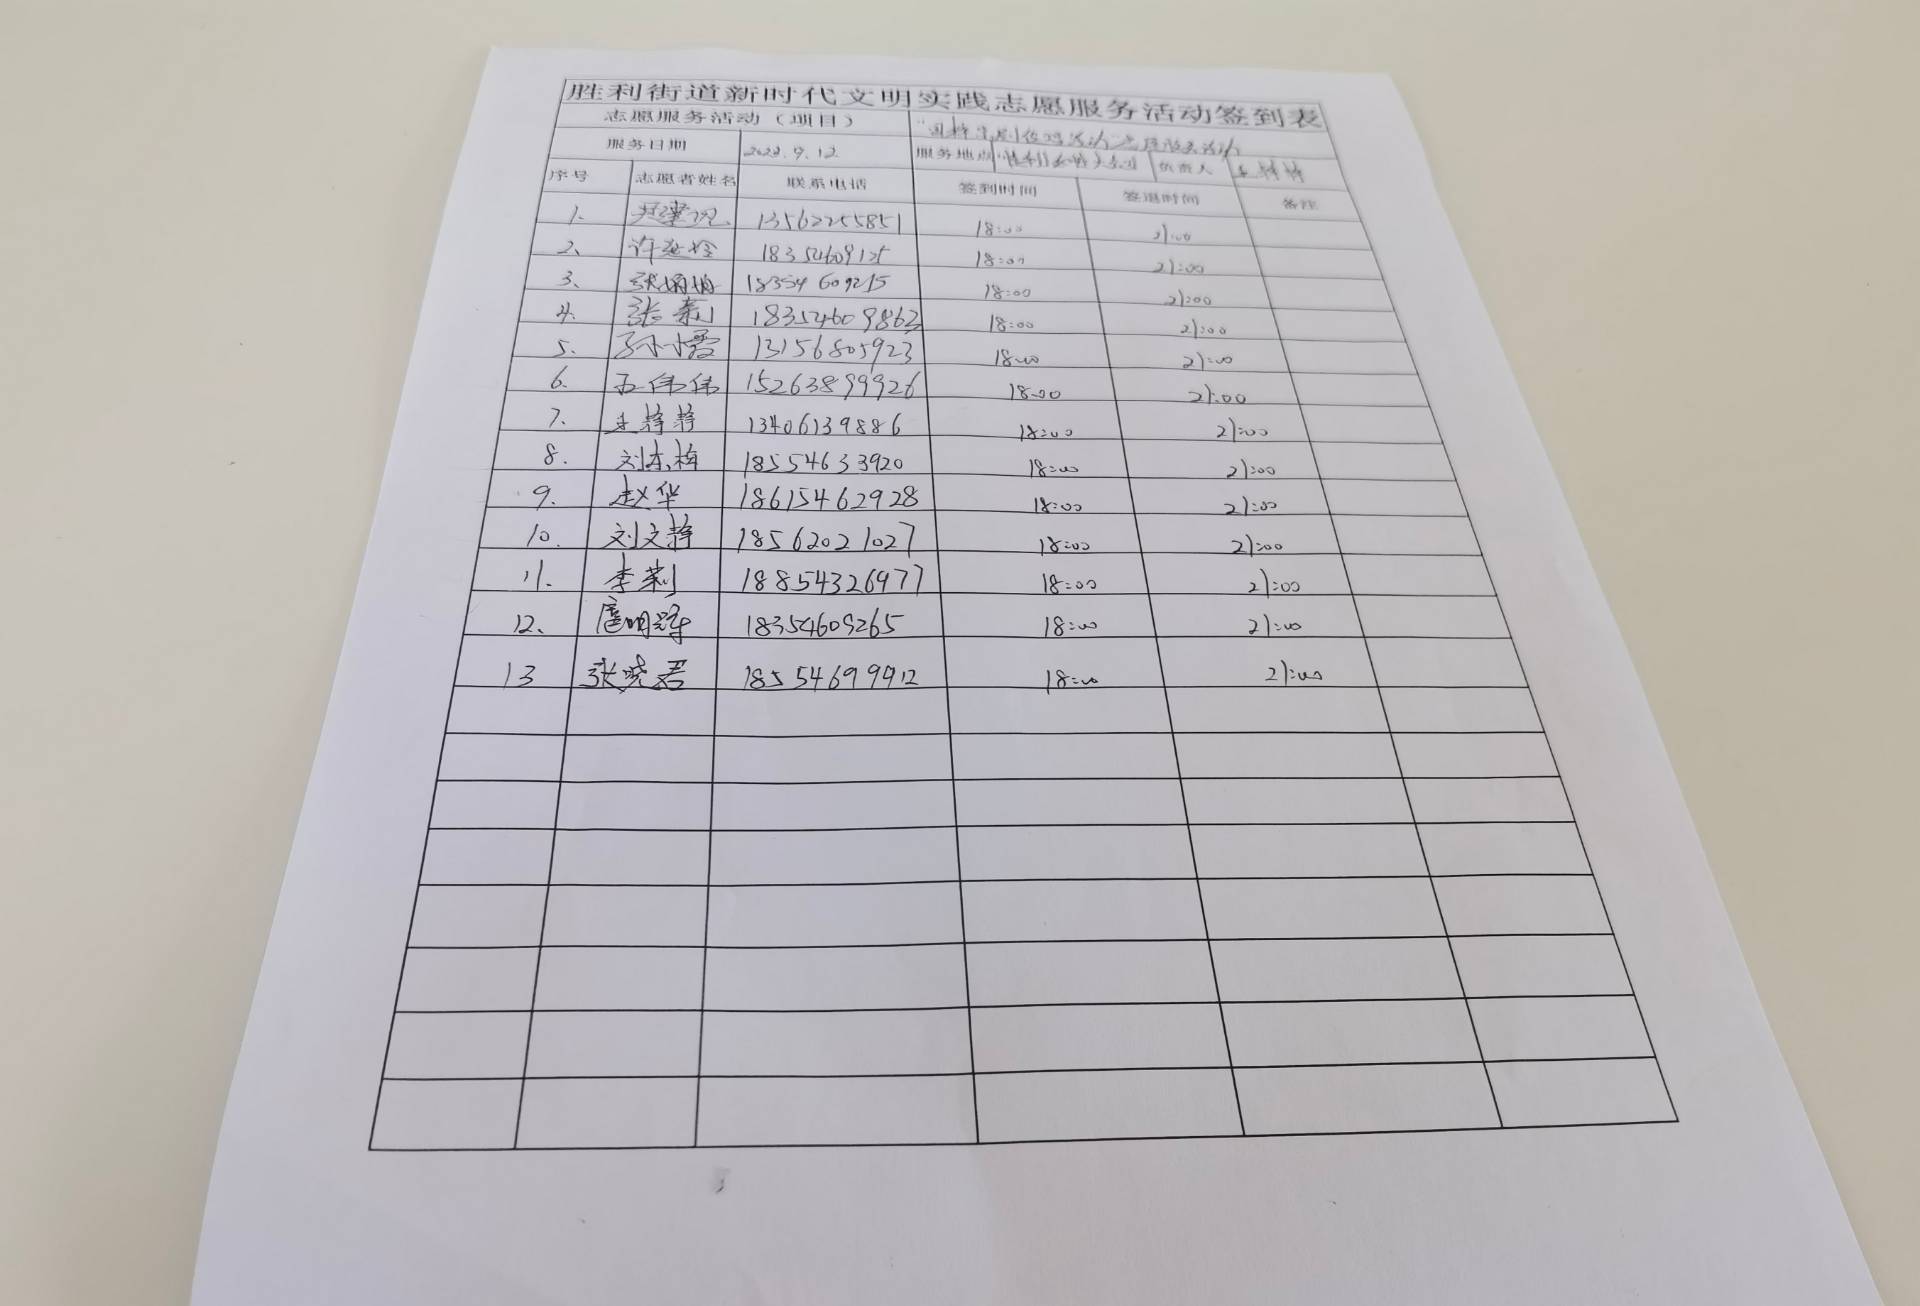 胜利街道新时代文明实践志愿服务活动签到表
志愿服务活动（项目）
服务日期 2022.9.12 服务地点 负责人 王静静
序号 志愿者姓名 联系电话 签到时间 签退时间 备注
1. 13562255851 18:00 21:00
2、 18354609125 18:00 21:00
3、 18354609215 18:00 21:00
4. 张莉 18354609862 18:00 21:00
5. 孙小雪 13156805923 18:00 21:00
6. 王伟伟 15263899926 18:00 21:00
7. 王静静 13406139886 18:00 21:00
8. 刘东梅 18554633920 18:00 21:00
9. 赵华 18615462928 18:00 21:00
10. 刘文静 18562021027 18:00 21:00
11. 李莉 18854326977 18:00 21:00
12、 18354609265 18:00 21:00
13 张晓君 18554699912 18:00 21:00